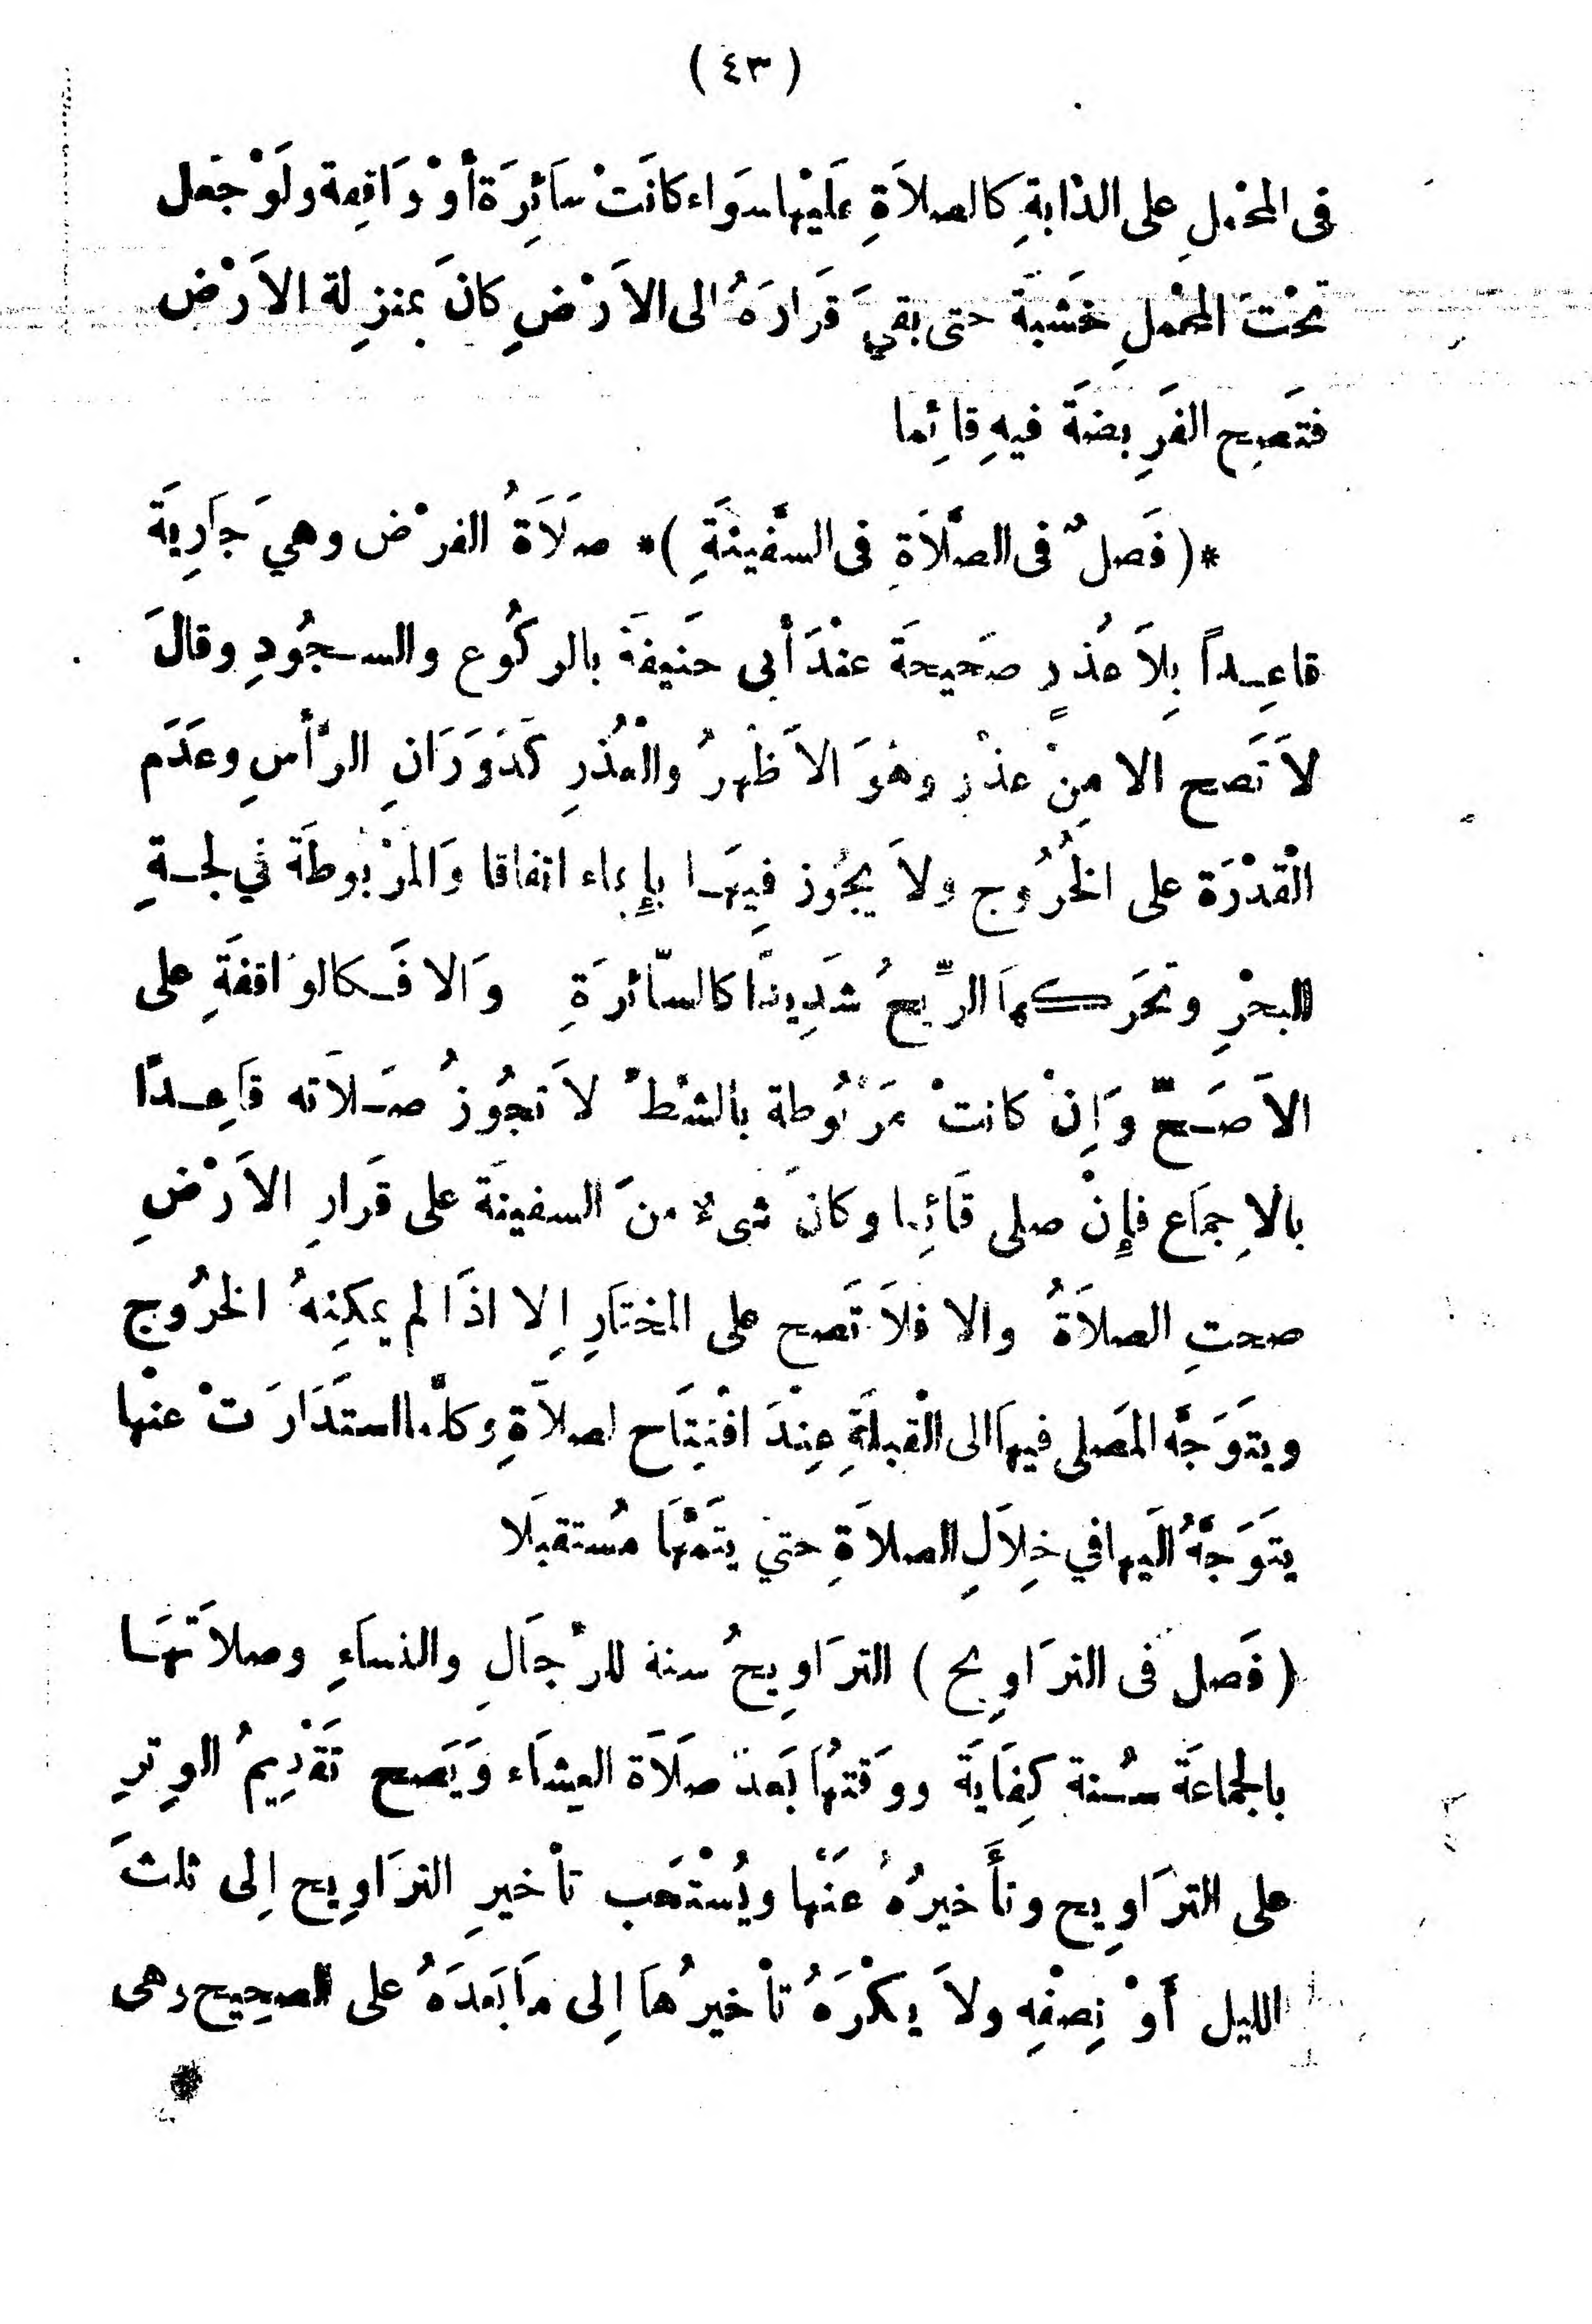 ( ٤٣ )
فى المحْملِ على الدّابةِ كالصلاَةِ عَلَيْها سَواء كانَتْ سَائِرَة أَوْ وَاقِفة ولَوْ جَعل
تحْتَ المحْملِ خَشبَةَ حتى بقيَ قَرارَهُ الى الاَرْضِ كانَ بمنزِلة الاَرْض
فتَصِح الفَرِيضَةَ فيهِ قائِما
*( فَصلٌ فى الصَّلاَةِ فى السَّفينَةِ )* صَلَاَةُ الفرْض وهيَ جَارِيَةَ
قاعِــداً بِلاَ عُذرٍ صَحيحَةَ عنْدَ أبى حَنيفَةَ بالركُوع والســجُودِ وقالَ
لاَ تَصح الا مِنْ عذْرٍ وهُوَ الاَظْهرُ والْعُذْرِ كَدَوَرَانِ الرَّأسِ وعَدَم
الْقُدْرَة على الخُرُوج ولاَ يجُوز فِيهَـا بإِيماء اتفاقا وَالمَرْبُوطَةَ في لجـةِ
البحْرِ وتحَرَكهاَ الرِّيحُ شَدِيدًا كالسَّائرَةِ وَالا فَـكالوَاقفَةِ على
الاَصَـحِّ وَإِنْ كانتْ مَرْبُوطة بالشطْ لاَ تجُوزُ صَـلاَته قَاعِـدًا
بالاِجمَاع فإِنْ صلى قَائِما وكانَ شىءٌ منَ السفينَةَ على قَرارِ الاَرْضِ
صحتِ الصلاَةُ والا فلاَ تَصح على المختَارِ إِلا اذَا لم يمكِنهُ الخرُوج
ويتَوَجَّه المَصلى فيهاَ الى الْقبلَةِ عِنْدَ افْتِتَاح لصلاَةِ وكلَّما استَدَارَتْ عنْها
يتَوَجَّهُ الَيها في خِلاَلِ الصلاَةِ حتيْ يتمَّهَا مُستقبَلا
( فَصل فى الترَاوِيح ) الترَاوِيحُ سنة للرْجَالِ والنساَءِ وصلاَتهَـا
بالجماعَةَ سُـنة كِفَايَةَ ووَقتهُا بَعدَ صَلَاَة العِشَاء وَيَصح تَقدِيمُ الوِترِ
على الترَاوِيح وتأَخيرُهُ عَنْها ويُسْتَحَب تأخيرِ الترَاوِيح إِلى ثلثَ
الليل أَوْ نِصفْه ولاَ يكْرَهُ تأخيرُهاَ إِلى مَا بَعدَهُ على الصحِيح وهى